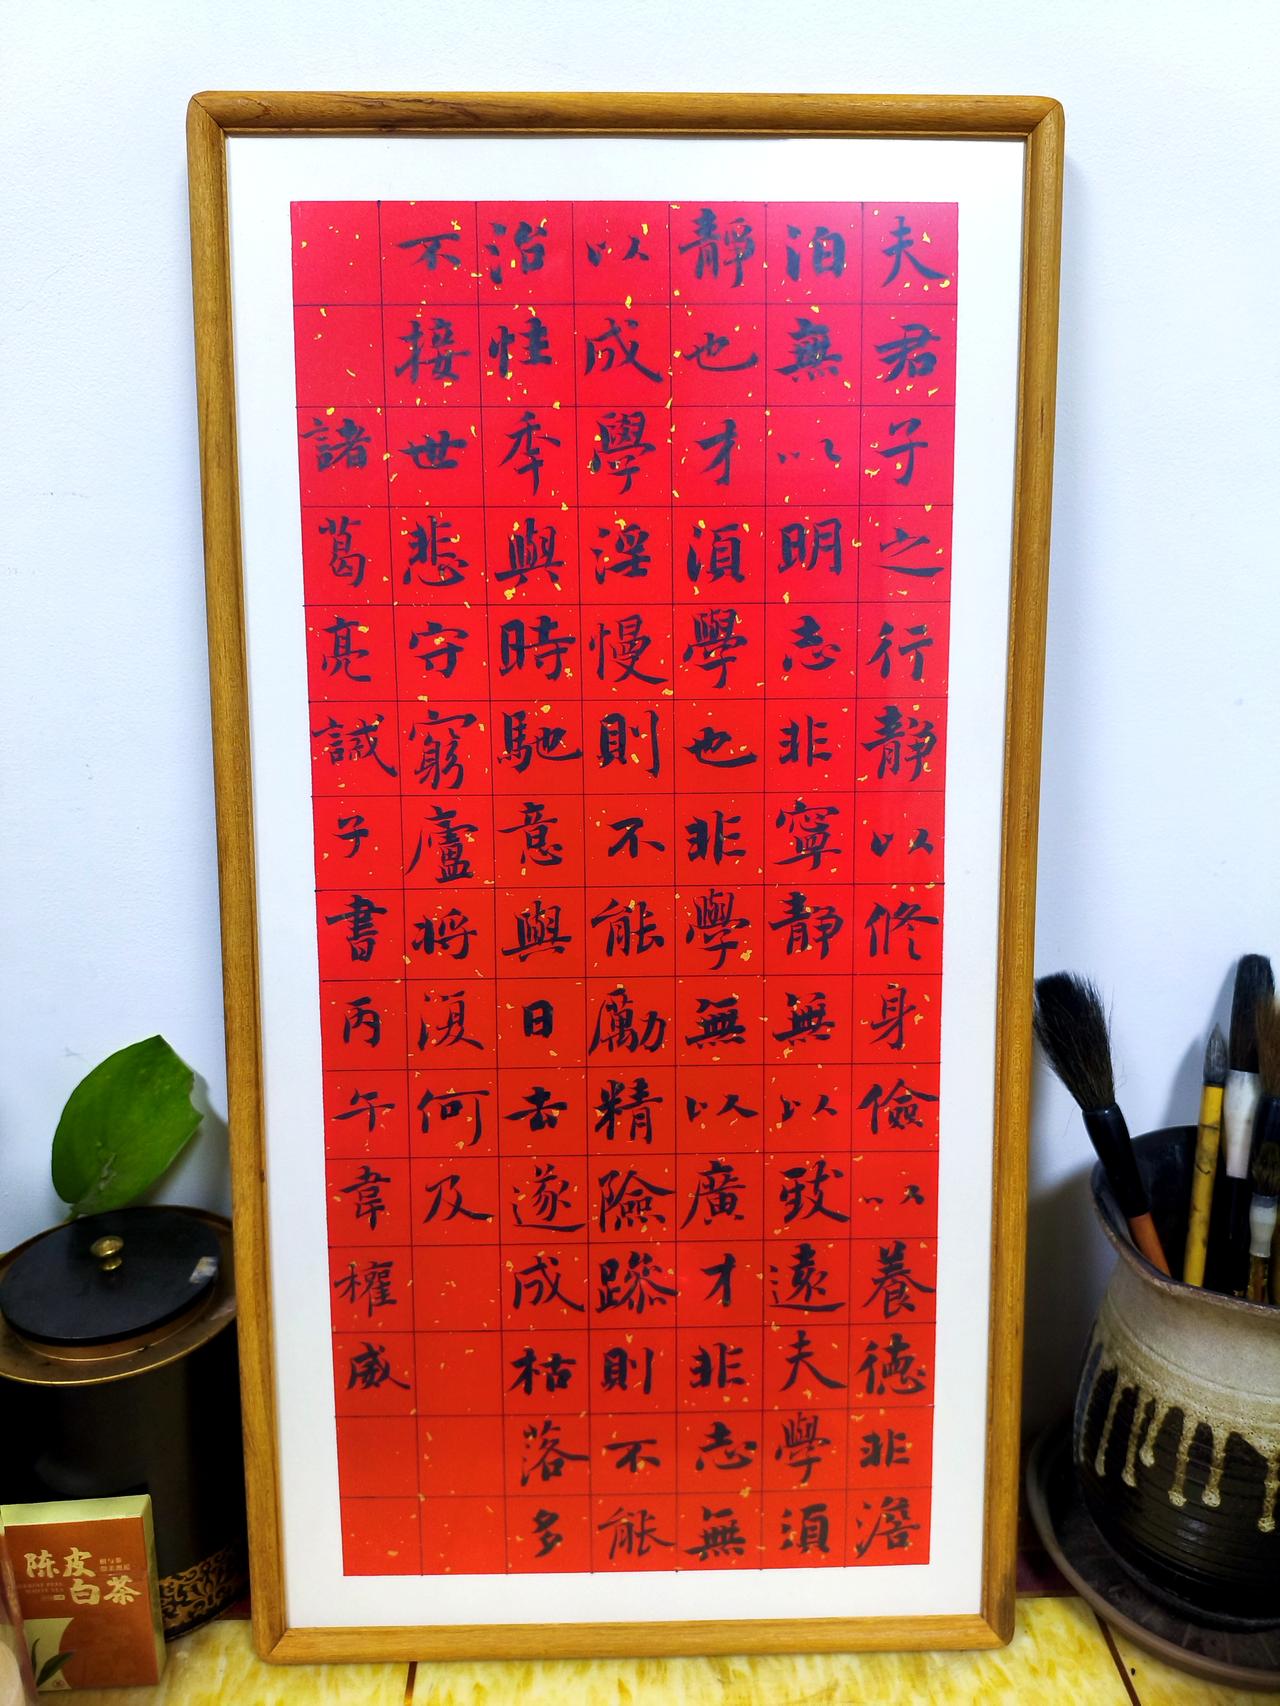 夫君子之行静以修身儉以養德非澹
泊無以明志非寧静無以致遠夫學須
靜也才須學也非學無以廣才非志無
以成學淫慢則不能勵精險躁則不能
治性秊與時馳意與日去遂成枯落多
不接世悲守窮廬將復何及
諸葛亮誡子書丙午韋權威
陈皮
白茶